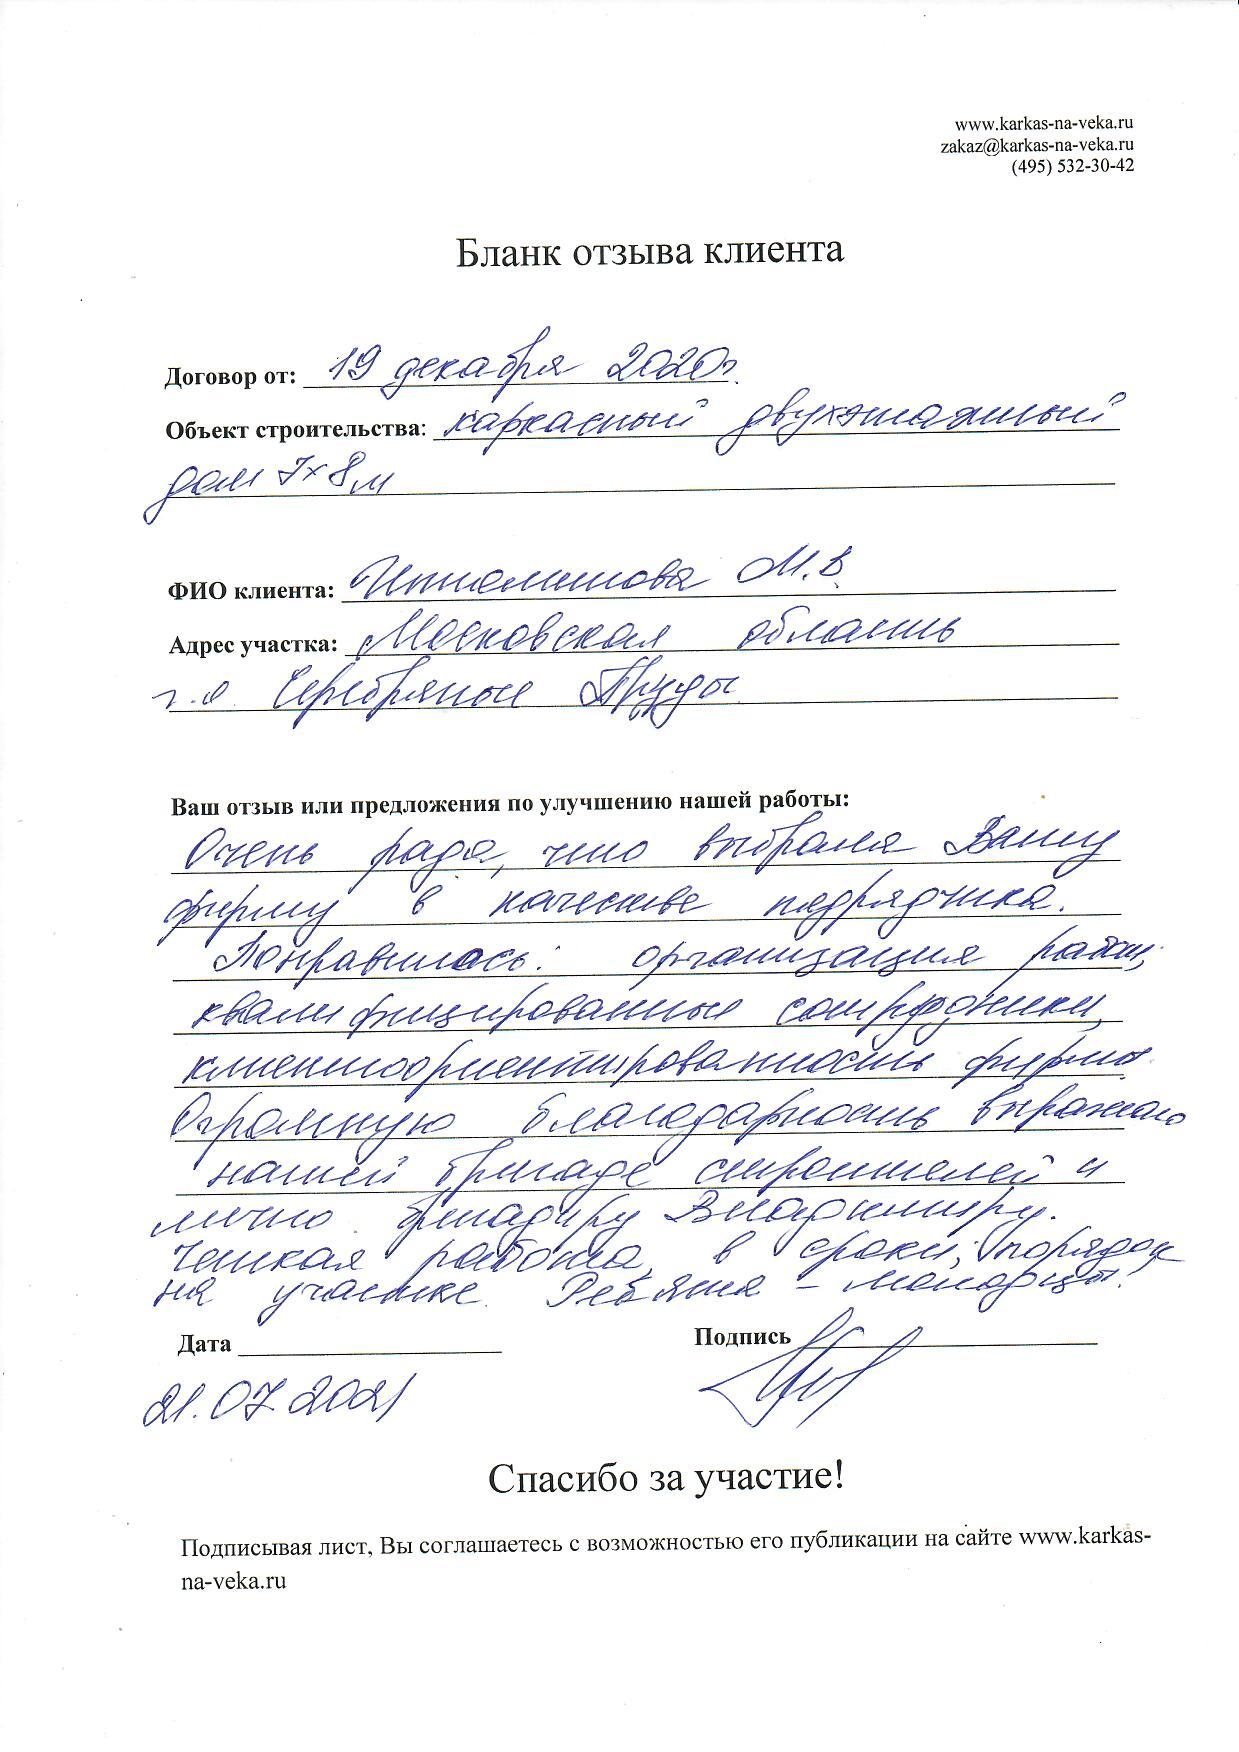 www.karkas-na-veka.ru
zakaz@karkas-na-veka.ru
(495) 532-30-42
Бланк отзыва клиента
Договор от: 19 декабря 2020г.
Объект строительства: каркасный двухэтажный
дом 7х8м
ФИО клиента: М.В.
Адрес участка: Московская область
г.о. Серебряные Пруды
Ваш отзыв или предложения по улучшению нашей работы:
Очень рада, что выбрала Вашу
фирму в качестве подрядчика.
Понравилось: организация работ,
квалифицированные сотрудники,
клиентоориентированность фирмы.
Огромную благодарность выражаю
нашей бригаде строителей и
лично бригадиру Владимиру.
Четкая работа, в сроки, порядок
на участке. Ребята - молодцы!
Дата
Подпись
21.07.2021
Спасибо за участие!
Подписывая лист, Вы соглашаетесь с возможностью его публикации на сайте www.karkas-
na-veka.ru